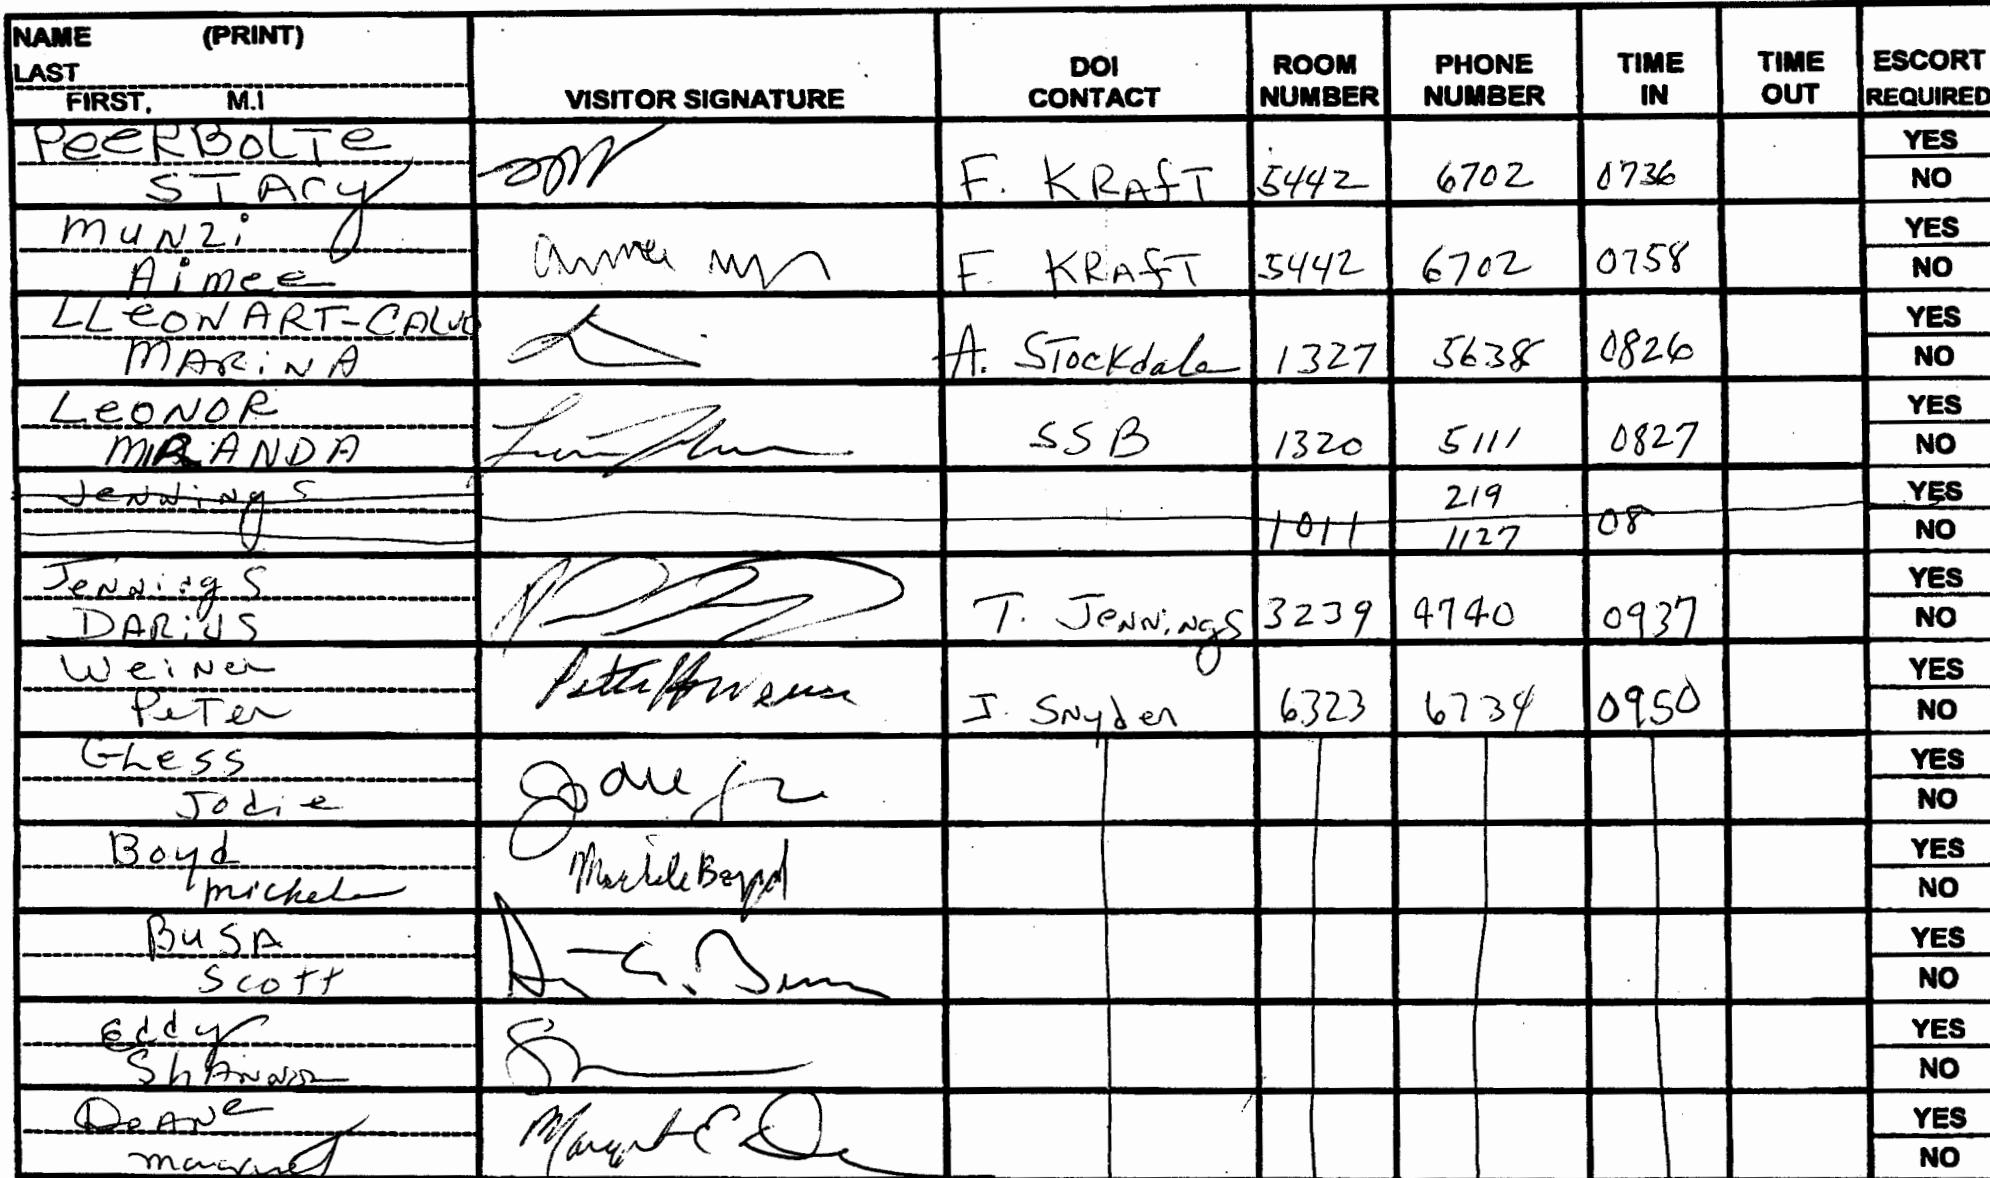 NAME (PRINT)
LAST
FIRST, M.I
VISITOR SIGNATURE
DOI
CONTACT
ROOM
NUMBER
PHONE
NUMBER
TIME
IN
TIME
OUT
ESCORT
REQUIRED
PeeRBoLTe
STACy
F. KRAfT 5442 6702 0736
YES
NO
MuNZi
Aimee
F. KRAfT 5442 6702 0758
YES
NO
LLeONART-CALVO
MARiNA
A. Stockdale 1327 5638 0826
YES
NO
LeONOR
MiRANDA
SSB 1320 5111 0827
YES
NO
JeNNiNgS
1011 219
1127 08
YES
NO
JeNNiNgS
DARiUS
T. JeNNiNgS 3239 4740 0937
YES
NO
WeiNer
PeTer
Peter Weiner
J. SNyder 6323 6734 0950
YES
NO
GLess
Jodie
Jodie
YES
NO
Boyd
Michele
Michele Boyd
YES
NO
BuSA
Scott
YES
NO
eddy
ShANNoN
YES
NO
DeANe
Margaret
Margaret E.
YES
NO